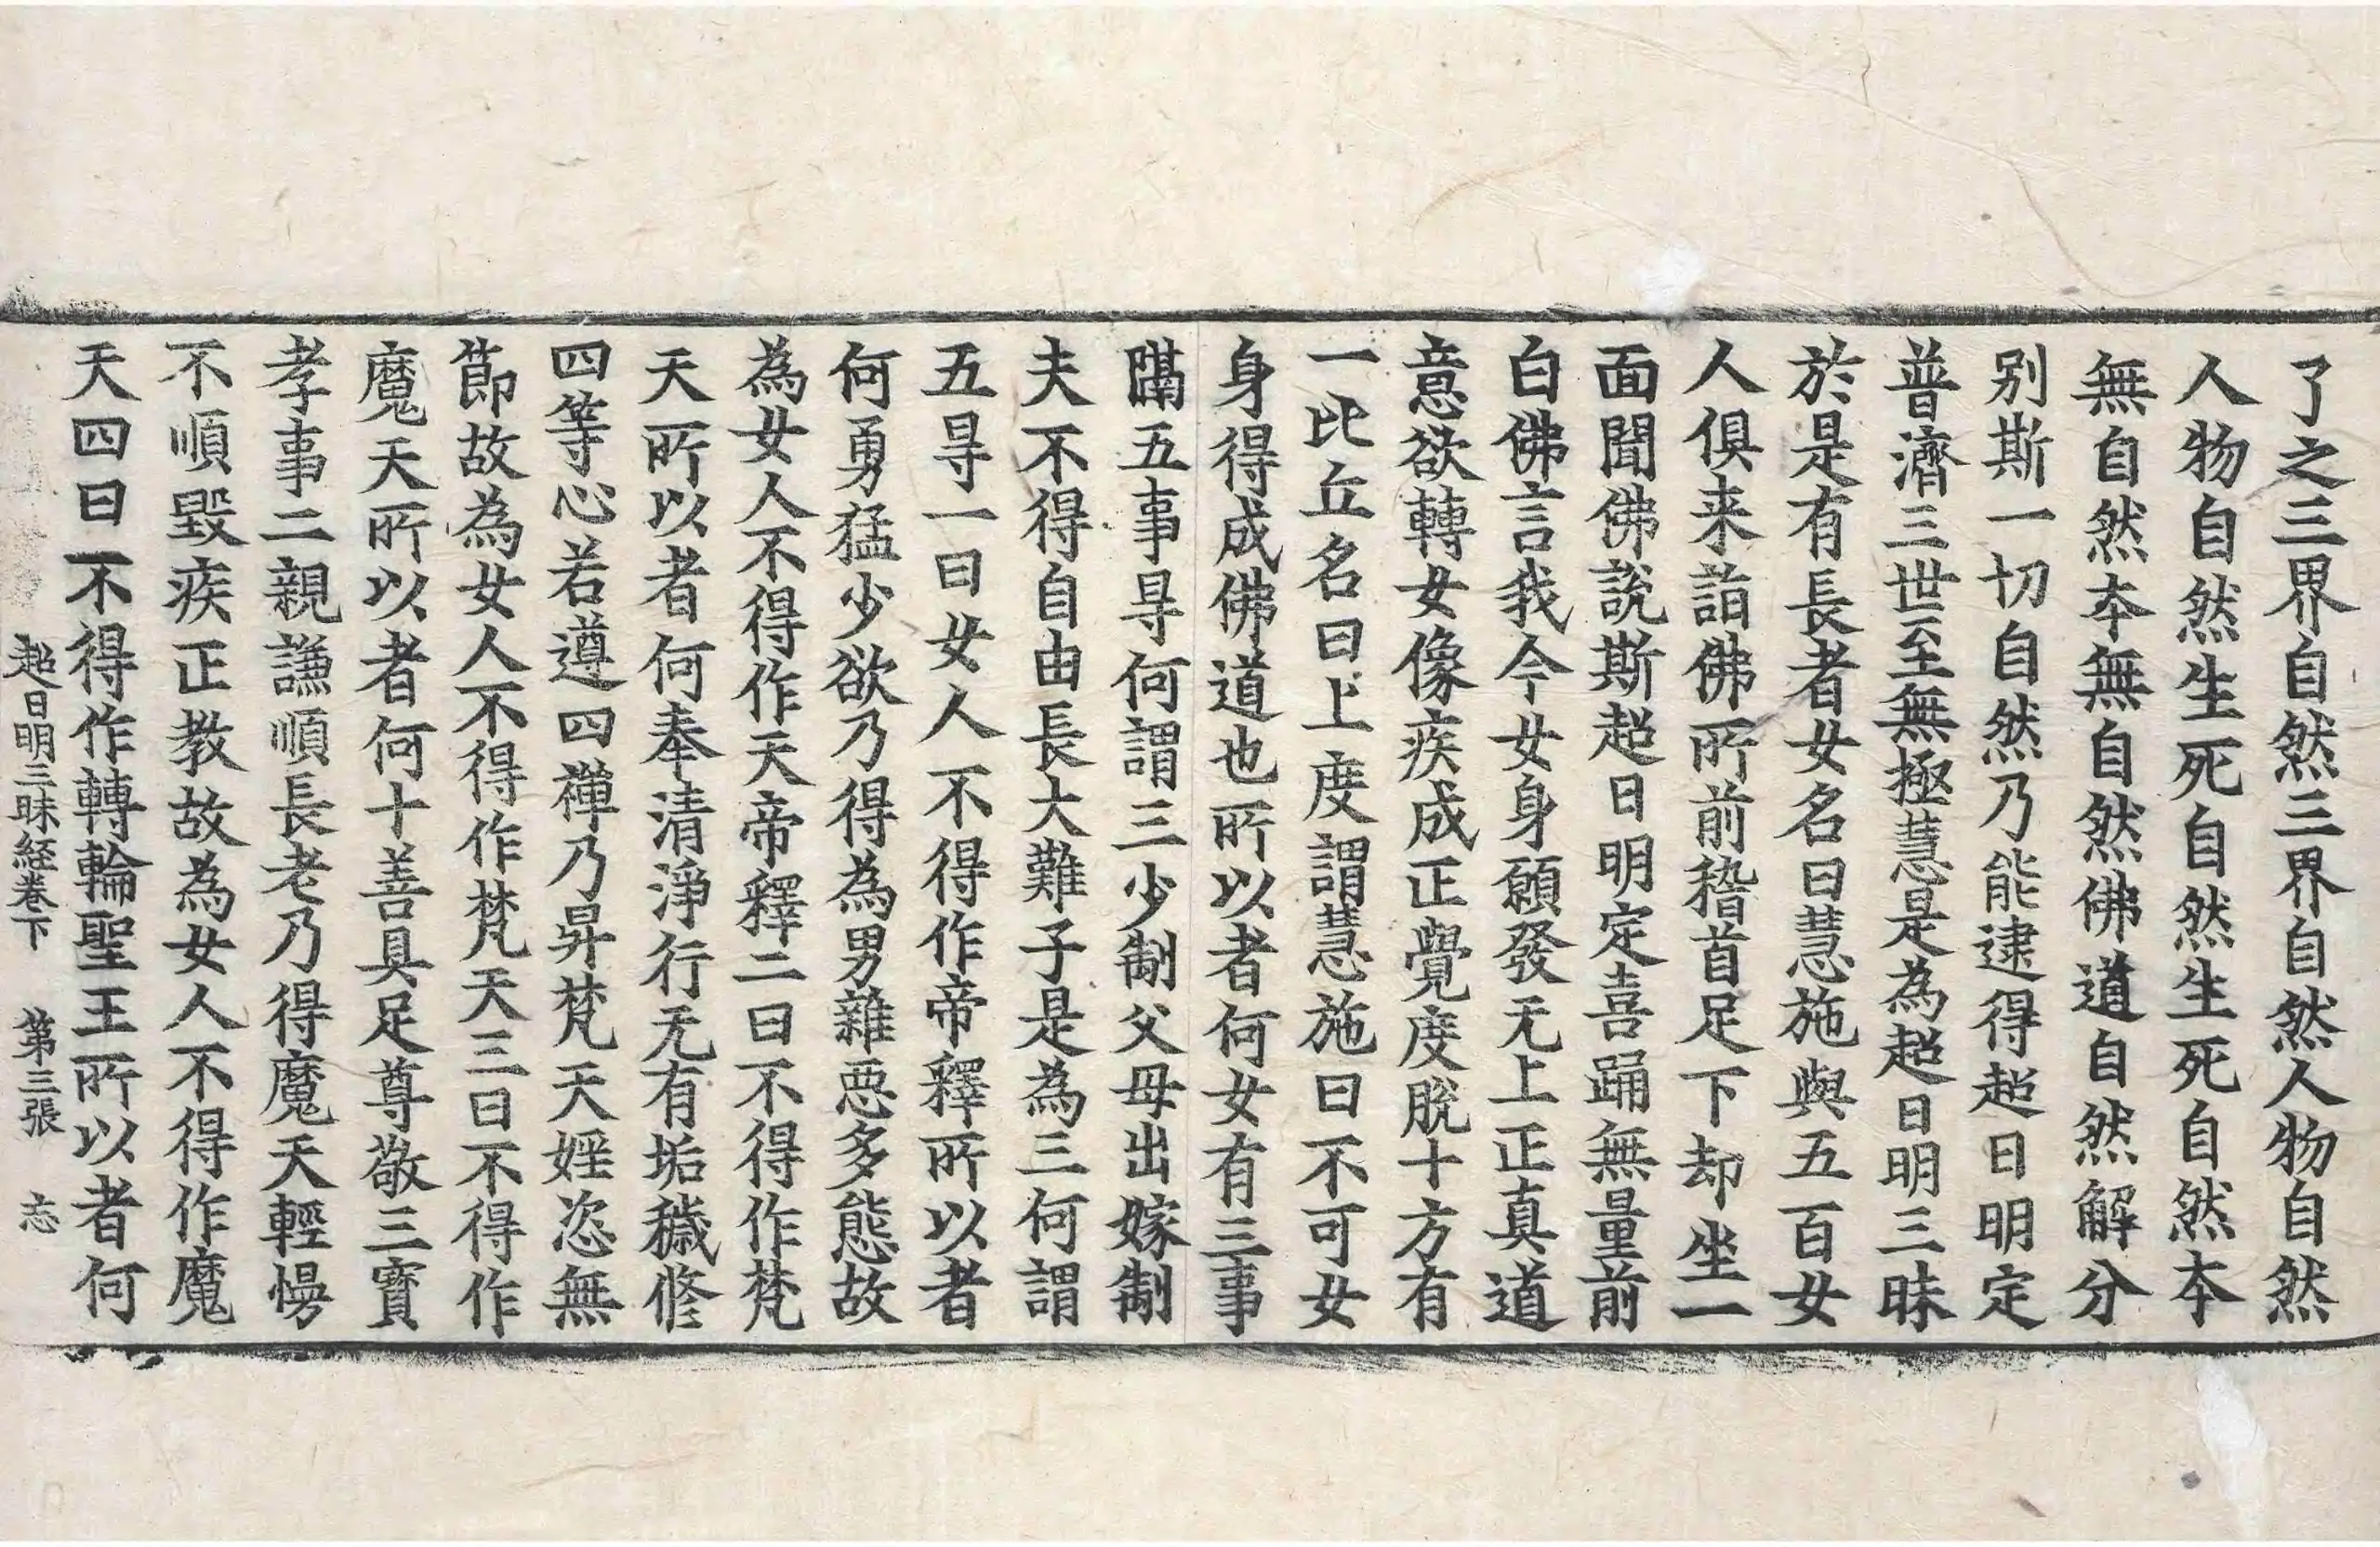 了之三界自然三界自然人物自然
人物自然生死自然生死自然夲
無自然夲無自然佛道自然解分
别斯一切自然乃能逮得超日明定
普濟三世至無極慧是為超日明三昧
於是有長者女名曰慧施與五百女
人俱来詣佛所前稽首足下却坐一
面聞佛說斯超日明定喜踊無量前
白佛言我今女身願發无上正真道
意欲轉女像疾成正覺度脫十方有
一比丘名曰上度謂慧施曰不可女
身得成佛道也所以者何女有三事
隔五事㝵何謂三少制父母出嫁制
夫不得自由長大難子是為三何謂
五㝵一曰女人不得作帝釋所以者
何勇猛少欲乃得為男雜惡多態故
為女人不得作天帝釋二曰不得作梵
天所以者何奉清淨行无有垢穢修
四等心若遵四禪乃昇梵天婬恣無
節故為女人不得作梵天三曰不得作
魔天所以者何十善具足尊敬三寶
孝事二親謙順長老乃得魔天輕慢
不順毀疾正教故為女人不得作魔
天四曰不得作轉輪聖王所以者何
超日明三昧経卷下 第三張 志